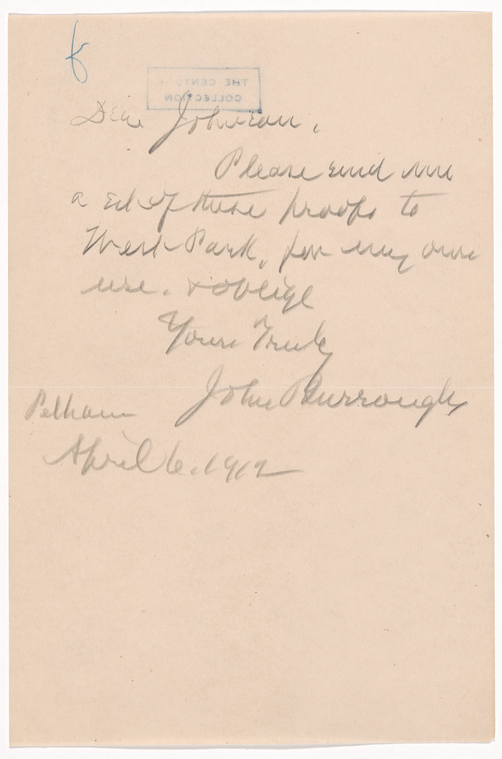 THE CENTURY
COLLECTION
Dear Johnson,
Please send me
a set of these proofs to
West Park, for my own
use. & oblige
Yours Truly
John Burroughs
Pelham
April 6. 1912